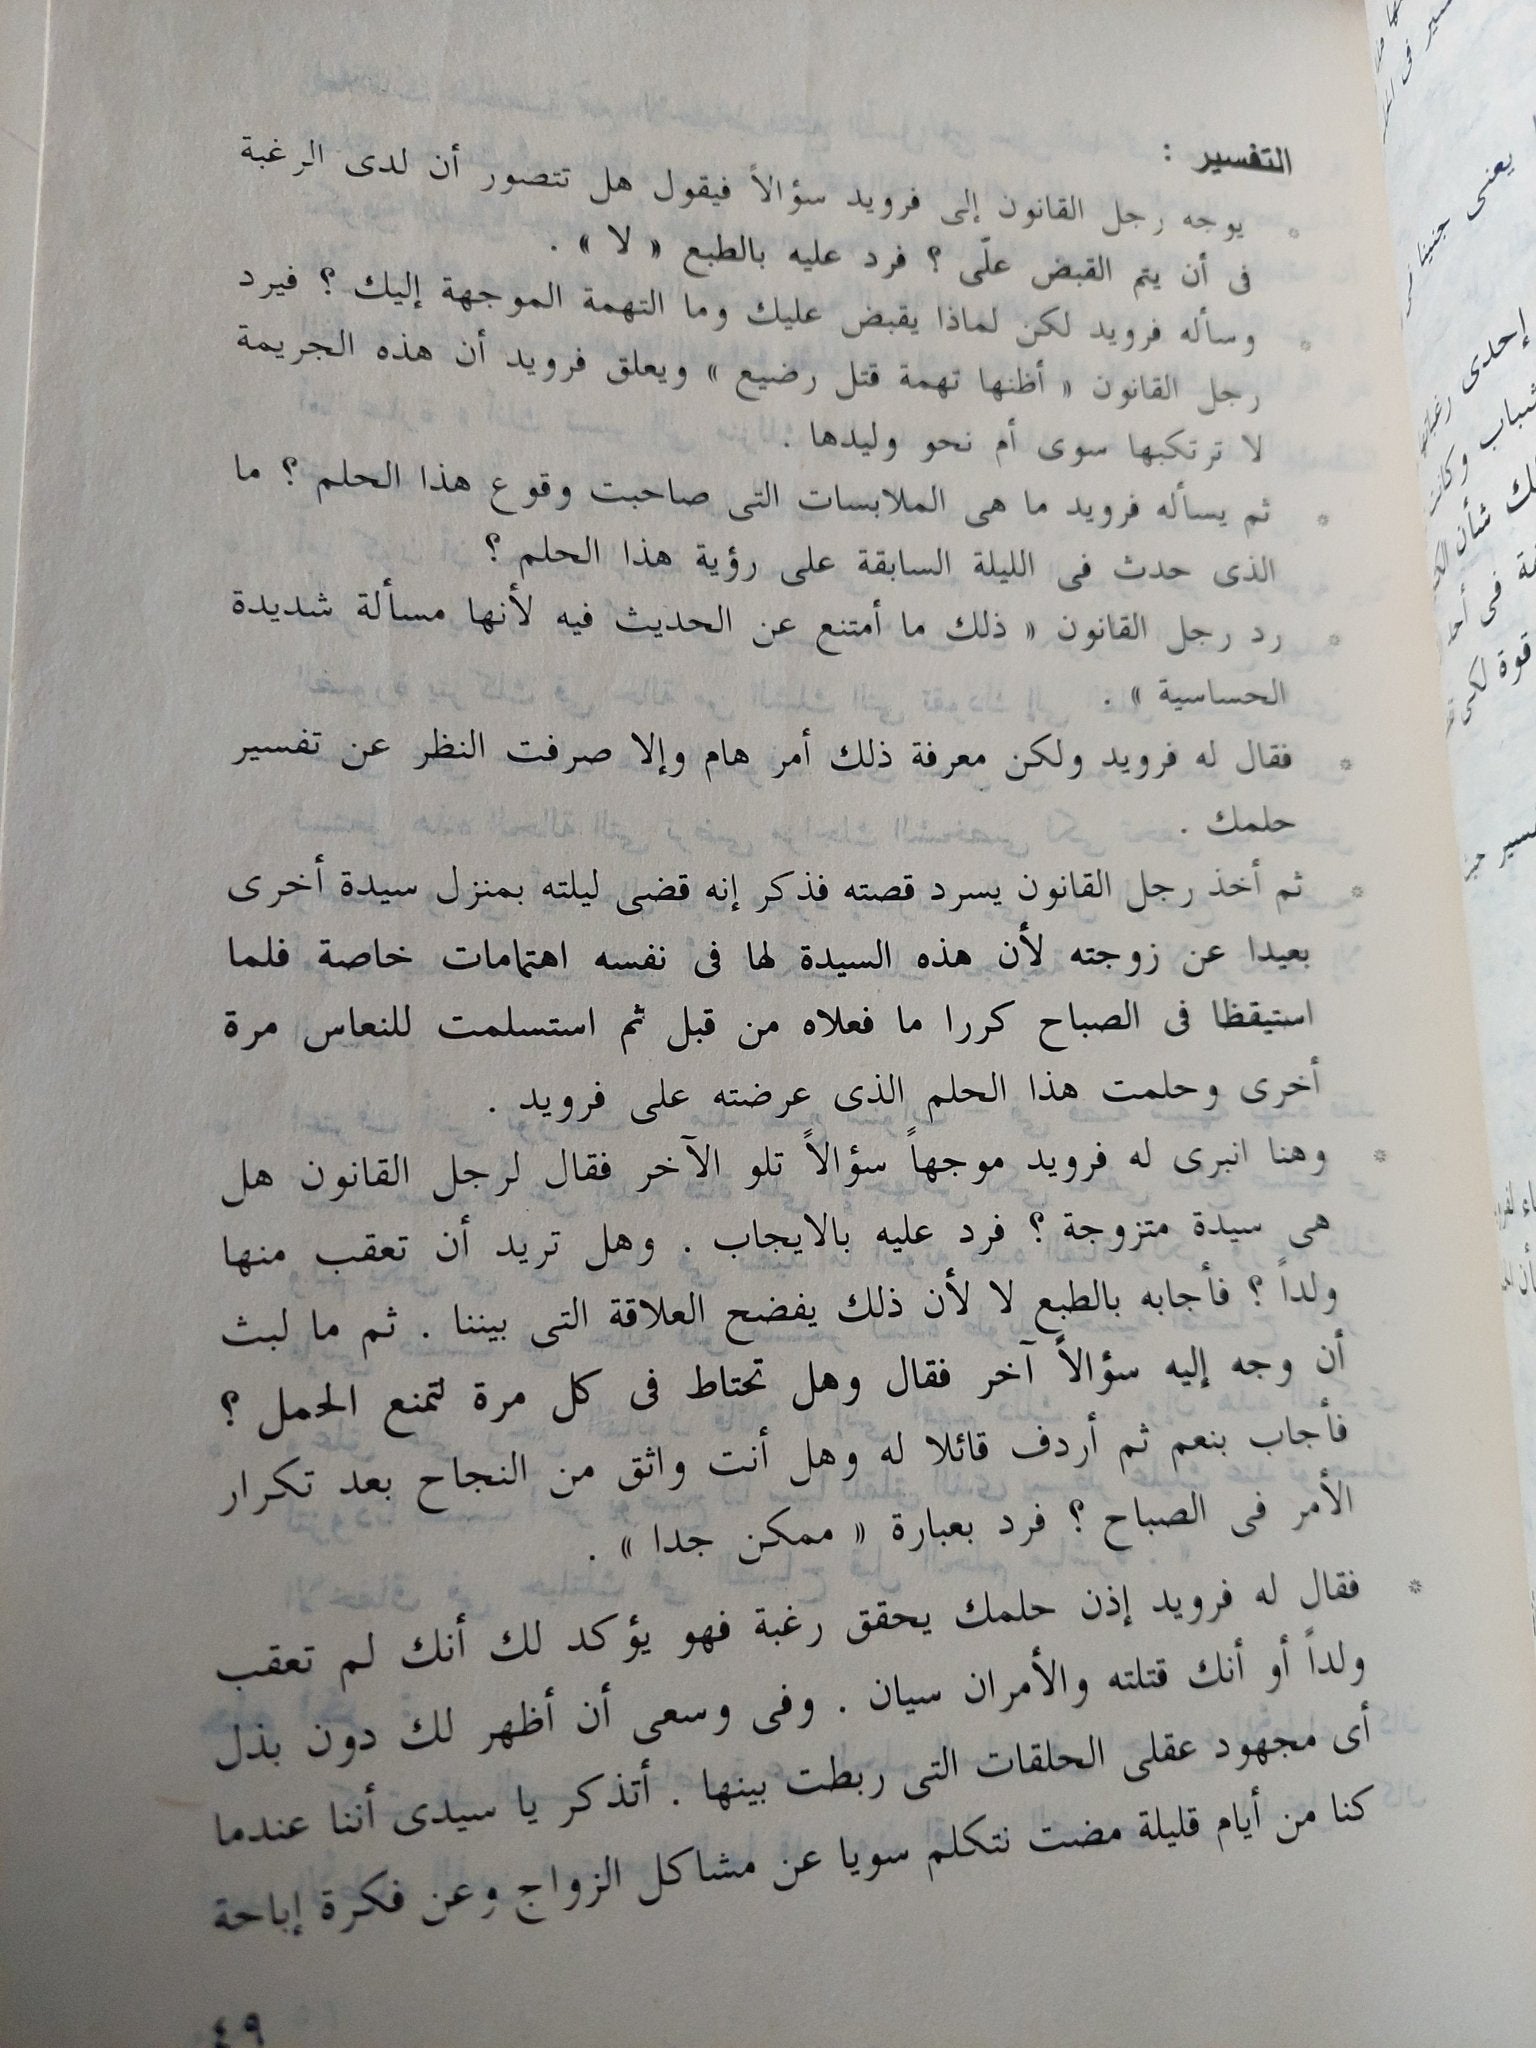 التفسير :
* يوجه رجل القانون إلى فرويد سؤالاً فيقول هل تتصور أن لدى الرغبة
فى أن يتم القبض علّى ؟ فرد عليه بالطبع « لا » .
* وسأله فرويد لكن لماذا يقبض عليك وما التهمة الموجهة إليك ؟ فيرد
رجل القانون « أظنها تهمة قتل رضيع » ويعلق فرويد أن هذه الجريمة
لا ترتكبها سوى أم نحو وليدها .
* ثم يسأله فرويد ما هى الملابسات التى صاحبت وقوع هذا الحلم ؟ ما
الذى حدث فى الليلة السابقة على رؤية هذا الحلم ؟
* رد رجل القانون « ذلك ما أمتنع عن الحديث فيه لأنها مسألة شديدة
الحساسية » .
* فقال له فرويد ولكن معرفة ذلك أمر هام وإلا صرفت النظر عن تفسير
حلمك .
* ثم أخذ رجل القانون يسرد قصته فذكر إنه قضى ليلته بمنزل سيدة أخرى
بعيدا عن زوجته لأن هذه السيدة لها فى نفسه اهتمامات خاصة فلما
استيقظا فى الصباح كررا ما فعلاه من قبل ثم استسلمت للنعاس مرة
أخرى وحلمت هذا الحلم الذى عرضته على فرويد .
* وهنا انبرى له فرويد موجهاً سؤالاً تلو الآخر فقال لرجل القانون هل
هى سيدة متزوجة ؟ فرد عليه بالايجاب . وهل تريد أن تعقب منها
ولداً ؟ فأجابه بالطبع لا لأن ذلك يفضح العلاقة التى بيننا . ثم ما لبث
أن وجه إليه سؤالاً آخر فقال وهل تحتاط فى كل مرة لتمنع الحمل ؟
فأجاب بنعم ثم أردف قائلا له وهل أنت واثق من النجاح بعد تكرار
الأمر فى الصباح ؟ فرد بعبارة « ممكن جدا » .
* فقال له فرويد إذن حلمك يحقق رغبة فهو يؤكد لك أنك لم تعقب
ولداً أو أنك قتلته والأمران سيان . وفى وسعى أن أظهر لك دون بذل
أى مجهود عقلى الحلقات التى ربطت بينها . أتذكر يا سيدى أننا عندما
كنا من أيام قليلة مضت نتكلم سويا عن مشاكل الزواج وعن فكرة إباحة
٤٩
يعنى جنينا
إحدى
قوة لكى